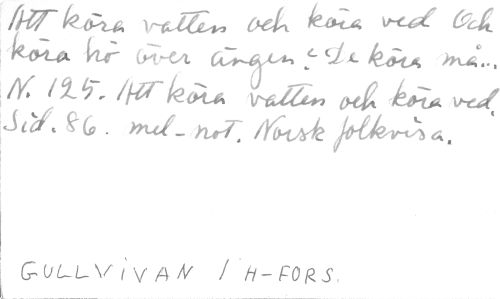 Att köra vatten och köra ved Och
köra hö över ängen? De köra må...
N. 125. Att köra vatten och köra ved.
Sid. 86. mel-not. Norsk folkvisa.
GULLVIVAN / H-FORS.